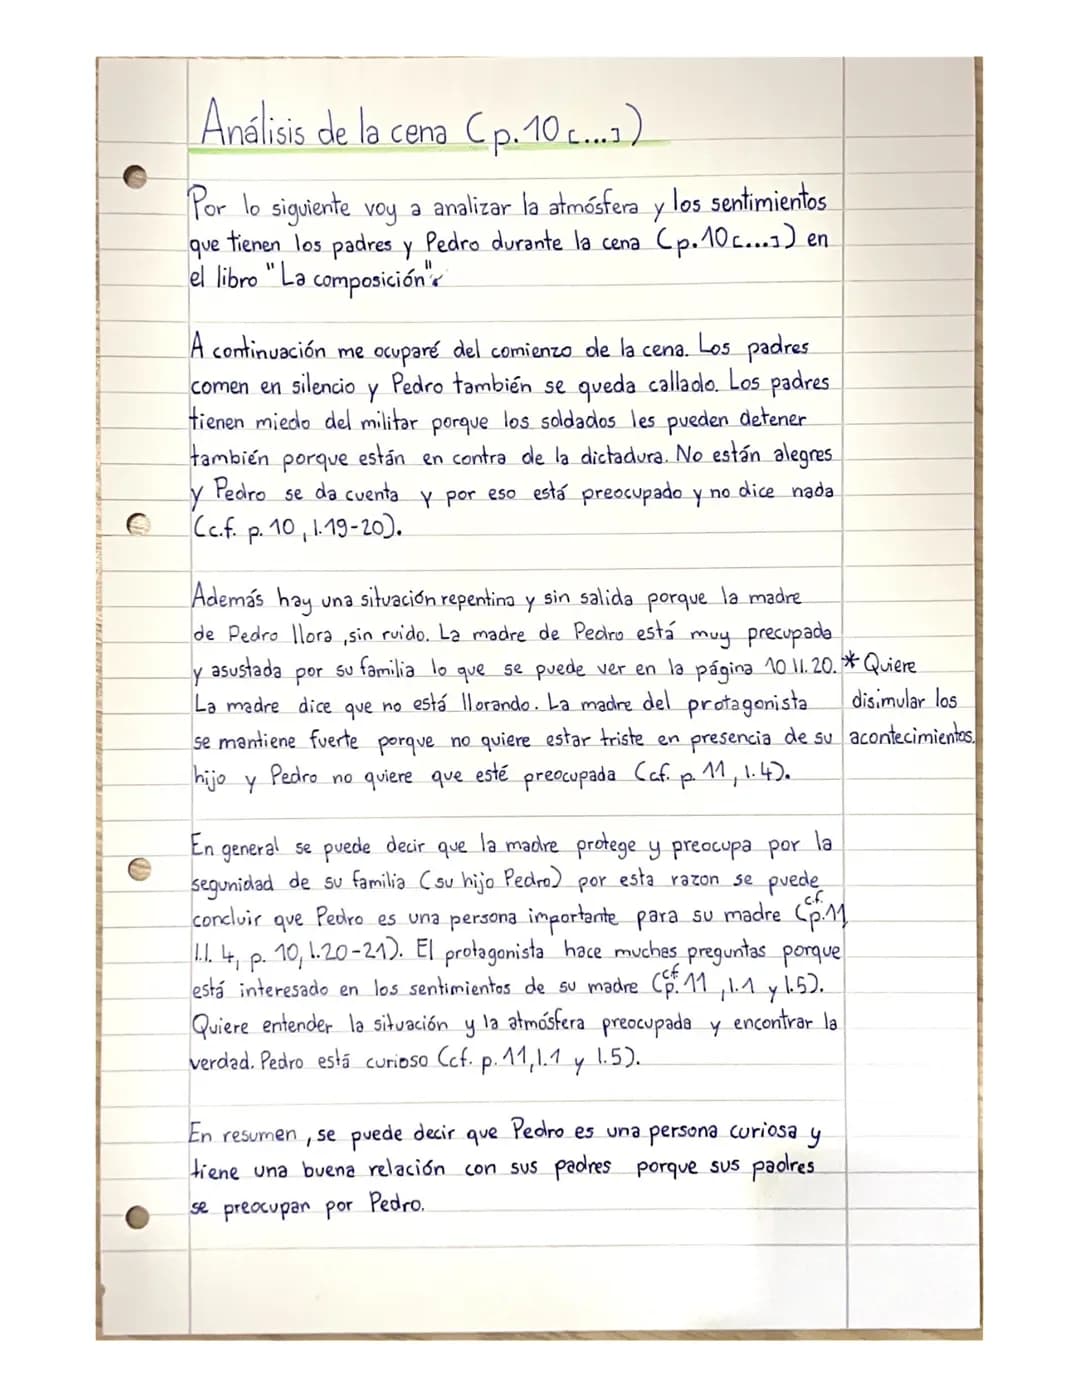 Análisis de la cena (p.10 [...])
Por lo siguiente voy a analizar la atmósfera y los sentimientos
que tienen los padres y Pedro durante la cena (p.10[...]) en
el libro "La composición".
A continuación me ocuparé del comienzo de la cena. Los padres
comen en silencio y Pedro también se queda callado. Los padres
tienen miedo del militar porque los soldados les pueden detener
también porque están en contra de la dictadura. No están alegres
y Pedro se da cuenta y por eso está preocupado y no dice nada
(c.f. p. 10, l.19-20).
Además hay una situación repentina y sin salida porque la madre
de Pedro llora, sin ruido. La madre de Pedro está muy precupada
y asustada por su familia lo que se puede ver en la página 10 ll. 20. * Quiere
La madre dice que no está llorando. La madre del protagonista disimular los
se mantiene fuerte porque no quiere estar triste en presencia de su acontecimientos.
hijo y Pedro no quiere que esté preocupada (cf. p. 11, l.4).
En general se puede decir que la madre protege y preocupa por la
segunidad de su familia (su hijo Pedro) por esta razon se puede
concluir que Pedro es una persona importante para su madre (c.f. p.11
l.l. 4, p. 10, l.20-21). El protagonista hace muchas preguntas porque
está interesado en los sentimientos de su madre (cf. p. 11, l.1 y l.5).
Quiere entender la situación y la atmósfera preocupada y encontrar la
verdad. Pedro está curioso (cf. p. 11, l.1 y l.5).
En resumen, se puede decir que Pedro es una persona curiosa y
tiene una buena relación con sus padres porque sus padres
se preocupan por Pedro.